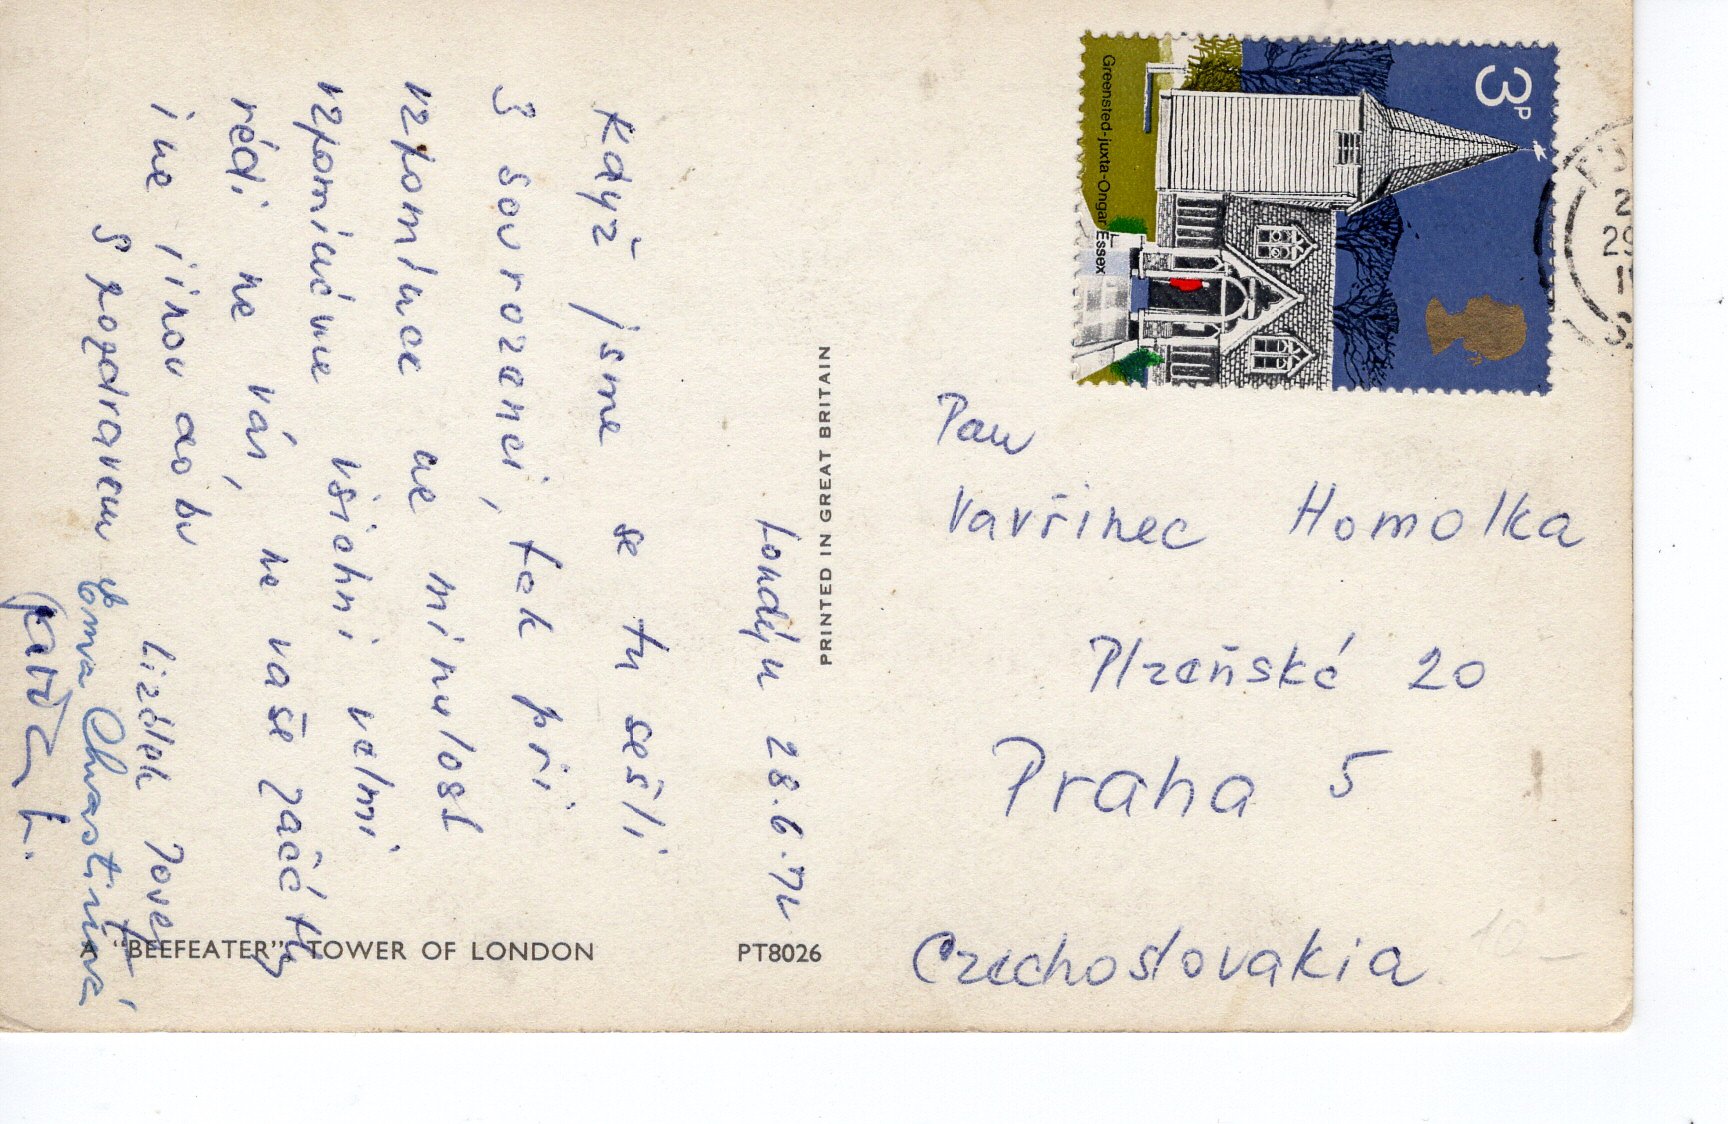 Londýn 28.6.72
Když jsme se tu sešli
s sourozenci, tak při
vzpomínce na minulost
vzpomínáme všichni velmi
rádi na vás, na vaše začátky
i na jinou dobu
S pozdravem
Emma Chvastinová
Pan
Vavřinec Homolka
Plzeňská 20
Praha 5
Czechoslovakia
3P
Greensted-juxta-Ongar Essex
PRINTED IN GREAT BRITAIN
A "BEEFEATER", TOWER OF LONDON
PT8026
10